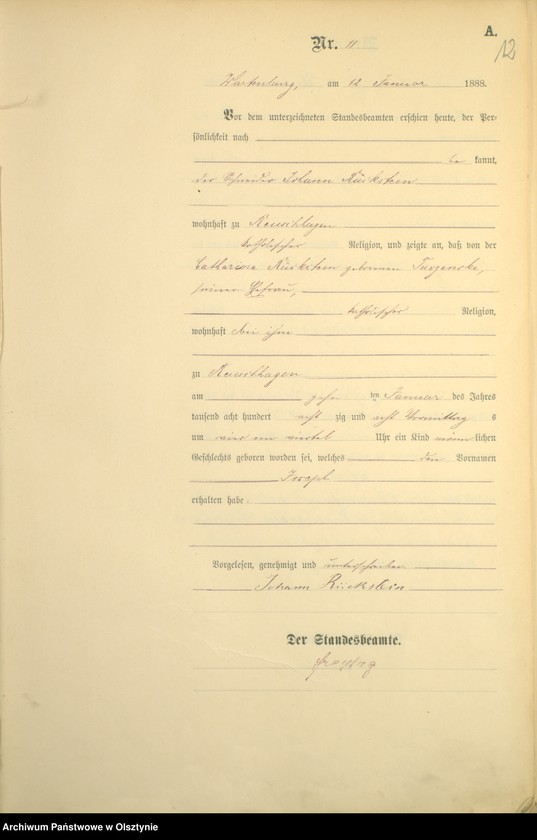 A.
12
Nr. 11
Wartenburg, am 12 Januar 1888.
Vor dem unterzeichneten Standesbeamten erschien heute, der Per-
sönlichkeit nach
be kannt,
der Schneider Johann Rückstein
wohnhaft zu Reuschhagen
katholischer Religion, und zeigte an, daß von der
Catharina Rückstein geborenen
seiner Ehefrau,
katholischer Religion,
wohnhaft bei ihm
zu Reuschhagen
am zehn ten Januar des Jahres
tausend acht hundert acht zig und acht Vormittag s
um viertel Uhr ein Kind männ lichen
Geschlechts geboren worden sei, welches den Vornamen
Joseph
erhalten habe.
Vorgelesen, genehmigt und unterschrieben
Johann Rückstein
Der Standesbeamte.
Archiwum Państwowe w Olsztynie